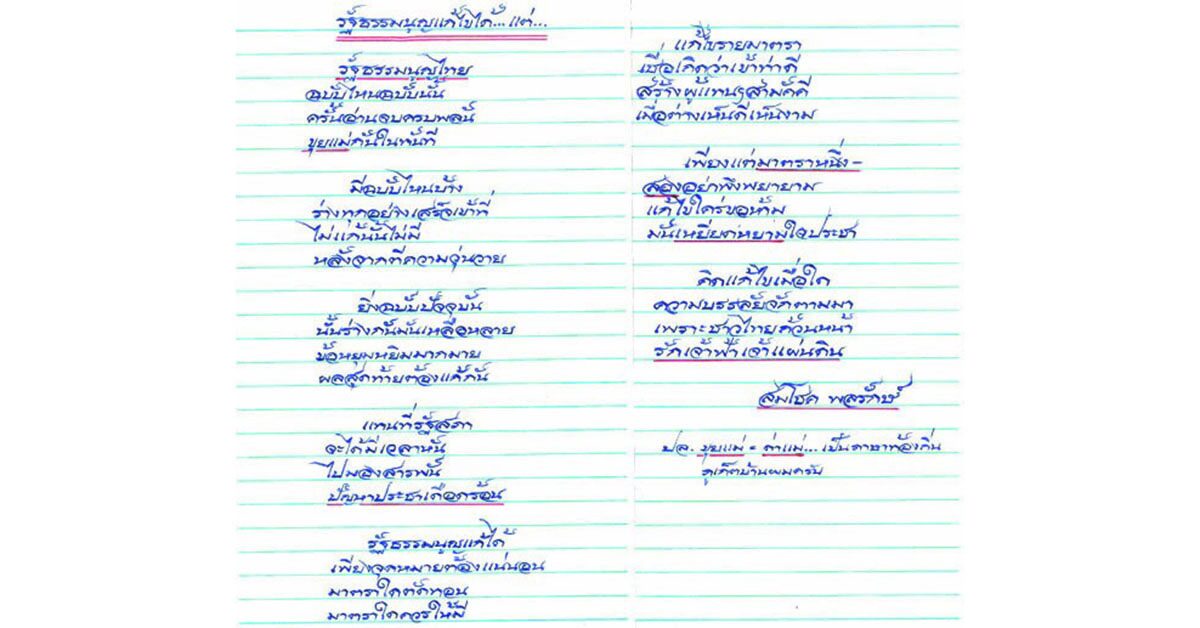 รัฐธรรมนูญแก้ไขได้...แต่...
รัฐธรรมนูญไทย
ฉบับไหนฉบับนั้น
ครั้นอ่านจบครบพลัน
ขุยแม่กันในทันที
มีฉบับไหนบ้าง
ร่างทุกอย่างเสร็จเข้าที่
ไม่แก้นั้นไม่มี
หลังจากตีความวุ่นวาย
ยิ่งฉบับปัจจุบัน
นั้นร่างกันมันเหลือหลาย
ข้อหยุมหยิมมากมาย
ผลสุดท้ายต้องแก้กัน
แทนที่รัฐสภา
จะได้มีเวลาหัน
ไปมองสารพัน
ปัญหาประชาเดือดร้อน
รัฐธรรมนูญแก้ได้
เพียงจุดหมายต้องแน่นอน
มาตราใดตัดทอน
มาตราใดควรให้มี
แก้ไขรายมาตรา
เชื่อเถิดว่าเข้าท่าดี
สร้างผู้แทนฯสามัคคี
เมื่อต่างเห็นดีเห็นงาม
เพียงแต่มาตราหนึ่ง-
สองอย่าพึงพยายาม
แก้ไขใคร่ขอห้าม
มันเหยียดหยามใจประชา
คิดแก้ไขเมื่อใด
ความบรรลัยจักตามมา
เพราะชาวไทยถ้วนหน้า
รักเจ้าฟ้าเจ้าแผ่นดิน
สมโชค พลรักษ์
ปล. ขุยแม่ = ด่าแม่... เป็นภาษาท้องถิ่น
ภูเก็ตบ้านผมครับ